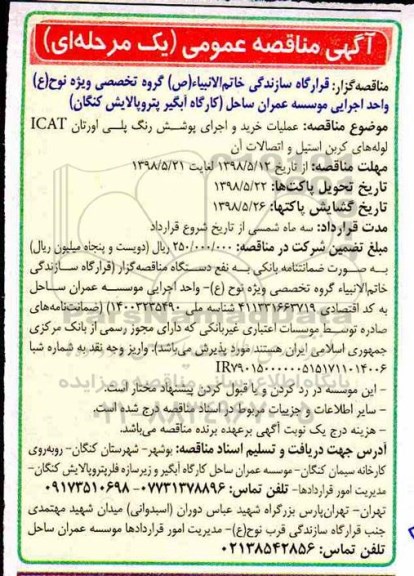 آگهی مناقصه عمومی (یک مرحله‌ای)
مناقصه‌گزار: قرارگاه سازندگی خاتم‌الانبیاء(ص) گروه تخصصی ویژه نوح(ع)
واحد اجرایی موسسه عمران ساحل (کارگاه آبگیر پتروپالایش کنگان)
موضوع مناقصه: عملیات خرید و اجرای پوشش رنگ پلی آورتان ICAT
لوله‌های کربن استیل و اتصالات آن
مهلت مناقصه: از تاریخ ۱۳۹۸/۵/۱۲ لغایت ۱۳۹۸/۵/۲۱
تاریخ تحویل پاکت‌ها: ۱۳۹۸/۵/۲۲
تاریخ گشایش پاکتها: ۱۳۹۸/۵/۲۶
مدت قرارداد: سه ماه شمسی از تاریخ شروع قرارداد
مبلغ تضمین شرکت در مناقصه: ۲۵۰/۰۰۰/۰۰۰ ریال (دویست و پنجاه میلیون ریال)
به صورت ضمانتنامه بانکی به نفع دستگاه مناقصه‌گزار (قرارگاه سازندگی
خاتم‌الانبیاء گروه تخصصی ویژه نوح (ع)- واحد اجرایی موسسه عمران ساحل
به کد اقتصادی ۴۱۱۳۲۱۶۶۳۷۱۹ شناسه ملی ۱۴۰۰۳۲۳۵۴۹۰) (ضمانت‌نامه‌های
صادره توسط موسسات اعتباری غیربانکی که دارای مجوز رسمی از بانک مرکزی
جمهوری اسلامی ایران هستند مورد پذیرش می‌باشد). واریز وجه نقد به شماره شبا
IR۷۹۰۱۵۰۰۰۰۰۰۵۱۵۱۷۱۱۰۱۴۰۰۶
- این موسسه در رد کردن و یا قبول کردن پیشنهاد مختار است.
- سایر اطلاعات و جزییات مربوط در اسناد مناقصه درج شده است.
- هزینه درج یک نوبت آگهی برعهده برنده مناقصه می‌باشد.
آدرس جهت دریافت و تسلیم اسناد مناقصه: بوشهر- شهرستان کنگان- روبه‌روی
کارخانه سیمان کنگان- موسسه عمران ساحل کارگاه آبگیر و زیرسازه فلرپتروپالایش کنگان-
مدیریت امور قراردادها- تلفن تماس: ۰۷۷۳۱۳۷۸۸۹۶- ۰۹۱۷۳۵۱۰۶۹۸
تهران- تهران‌پارس بزرگراه شهید عباس دوران (استبدوانی) میدان شهید مهتمدی
جنب قرارگاه سازندگی قرب نوح(ع)- مدیریت امور قراردادها موسسه عمران ساحل
تلفن تماس: ۰۲۱۳۸۵۴۲۸۵۶